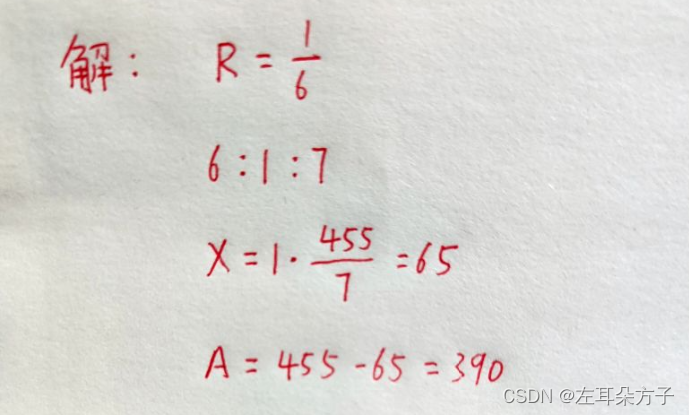 解： R = 1/6
6:1:7
X = 1· 455/7 = 65
A = 455 - 65 = 390
CSDN @左耳朵方子